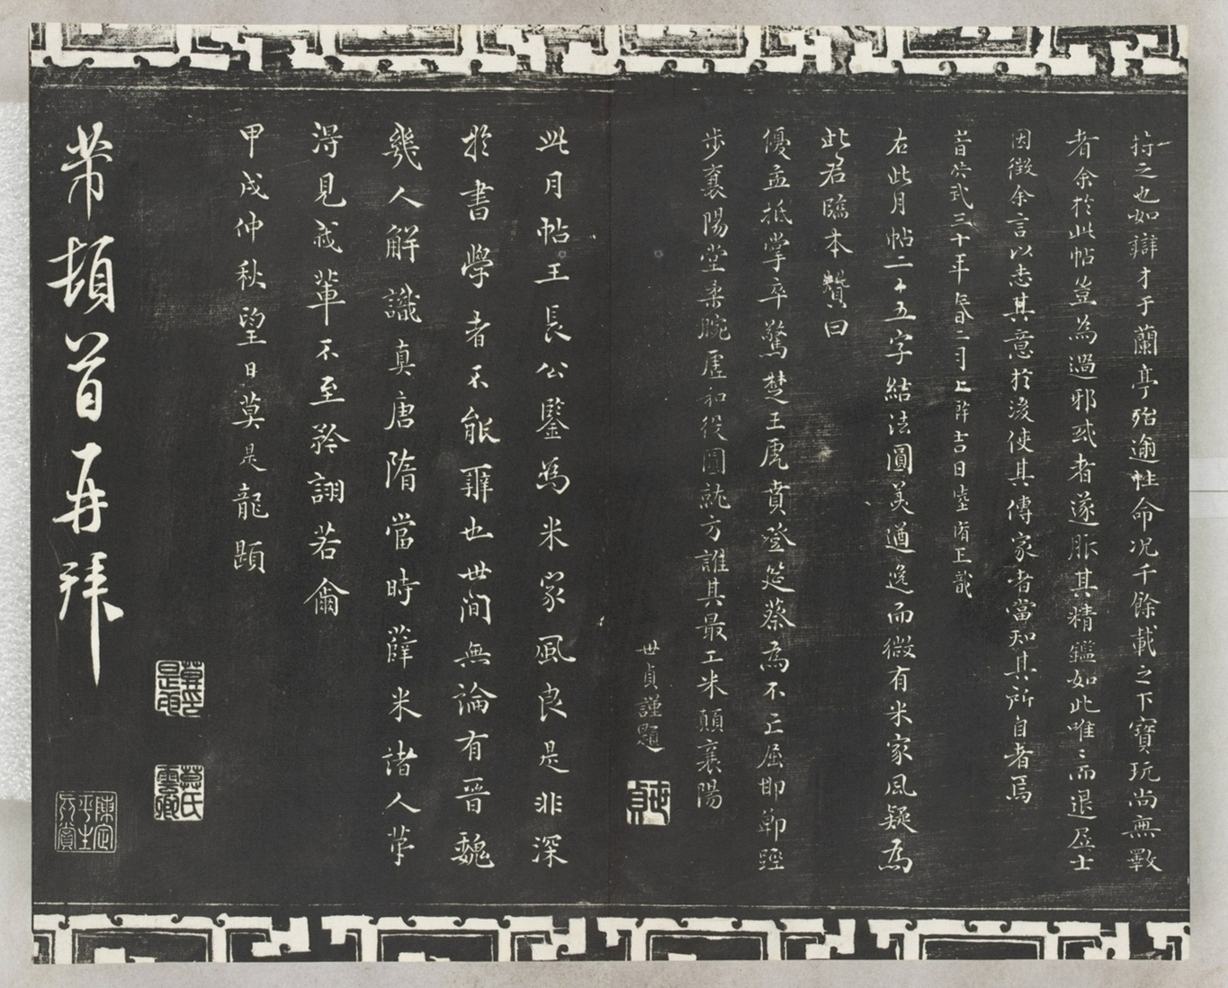 持之也如辯才于蘭亭殆逾性命况千餘載之下寶玩尚無斁
者余於此帖豈為過邪或者遂服其精鑑如此唯〻而退居士
因徵余言以志其意於後使其傳家者當知其所自者焉
昔洪武三十年春二月上澣吉日
右此月帖二十五字結法圓美遒逸而微有米家風疑為
此君臨本贊曰
優孟抵掌卒驚楚王虎賁登筵蔡為不亡屈
步襄陽堂柔腕虛和從圓就方誰其最工米顛襄陽
世貞謹題
此月帖王長公鑒為米家風良是非深
於書學者不能辯也世間無論有晉魏
幾人解識真唐隋當時薛米諸人輩
得見我輩不至矜詡若爾
甲戌仲秋望日莫是龍題
芾頓首再拜
莫氏
雲卿